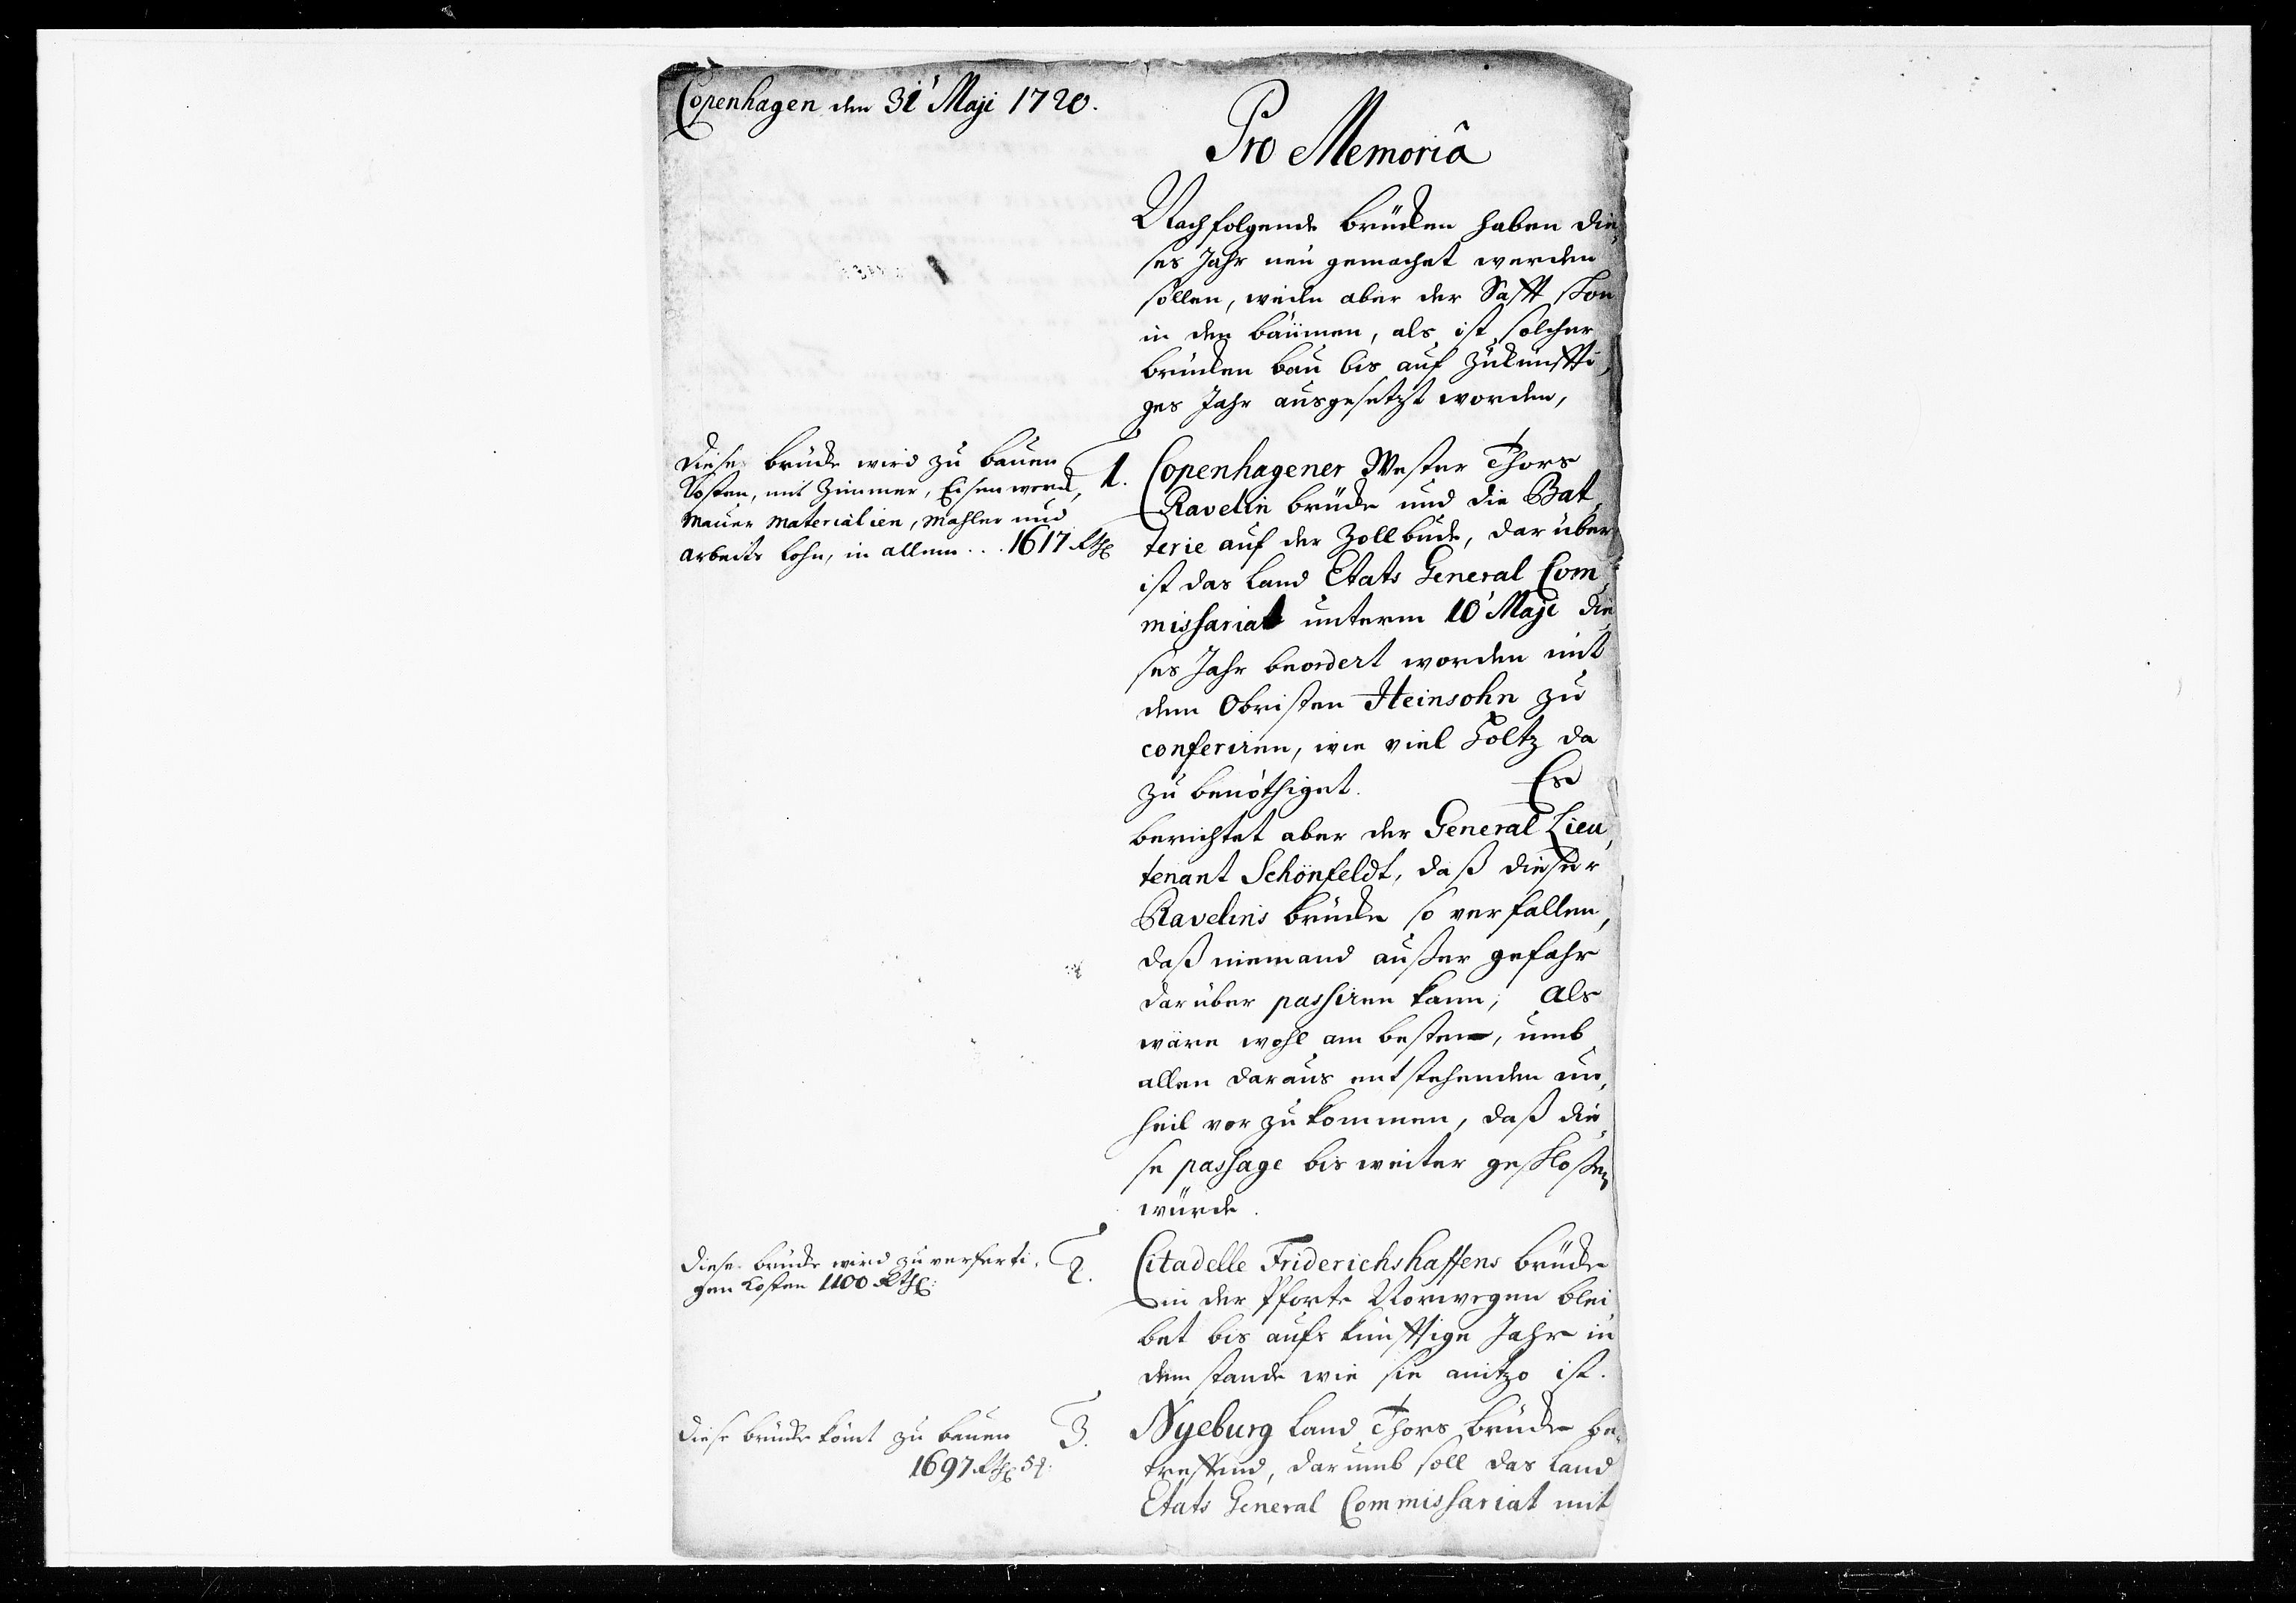 Copenhagen den 31' Maji 1720.
Pro Memoriâ
Nachfolgende brücken haben die,
ses Jahr neü gemachet werden
sollen, weiln aber der Safft schon
in den bäümen, als ist solcher
brücken bau bis auf zukünffti,
ges Jahr ausgesetzt worden,
Diese brücke wird zu bauen
kosten, mit Zimmer, Eisenwerck,
Mauer Materialien, Mahler und
arbeits lohn, in allem . . . 1617 Rthl
1. Copenhagener Wester Thors
Ravelin brücke und die Bat,
terie auf der Zollbude, darüber
ist das Land Etats General Com,
missariat unterm 10' Maji die,
ses Jahr beordert worden mit
dem Obristen Heinsohn zu
conferiren, wie viel Holtz da
zu benöthiget. Es
berichtet aber der General Lieu,
tenant Schönfeldt, daß dieser
Ravelins brücke so verfallen,
daß niemand außer gefahr
darüber passiren kann; Als
wäre wohl am besten, umb
allen daraus entstehenden un,
heil vor zu kommen, daß die,
se passage bis weiter geschloßen
würde.
Diese brücke wird zu verferti,
gen kosten 1100 Rthl:
2. Citadelle Friderichshaffens brücke
in der Pforte Norwegen blei
bet bis aufs künfftige Jahr in
dem stande wie sie anitzo ist.
Diese brücke kömt zu bauen
1697 Rthl 54.
3. Nyeburg Land Thors brücke be,
treffend, darumb soll das Land
Etats General Commissariat mit